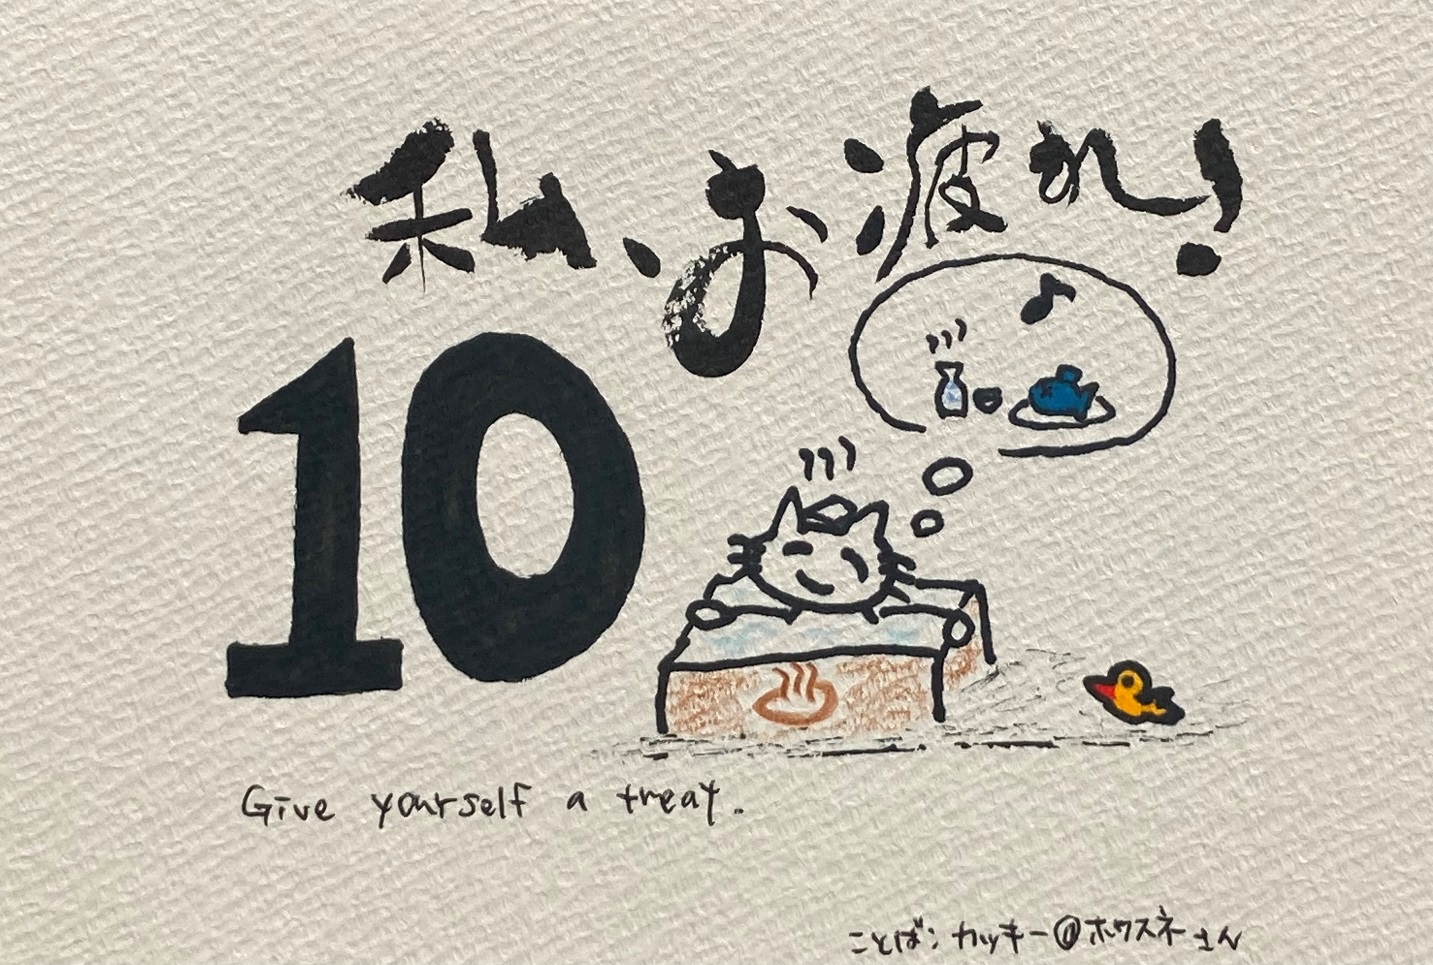 私、お疲れ!
10
Give yourself a treat.
ことば:カッキー@ホワスネさん